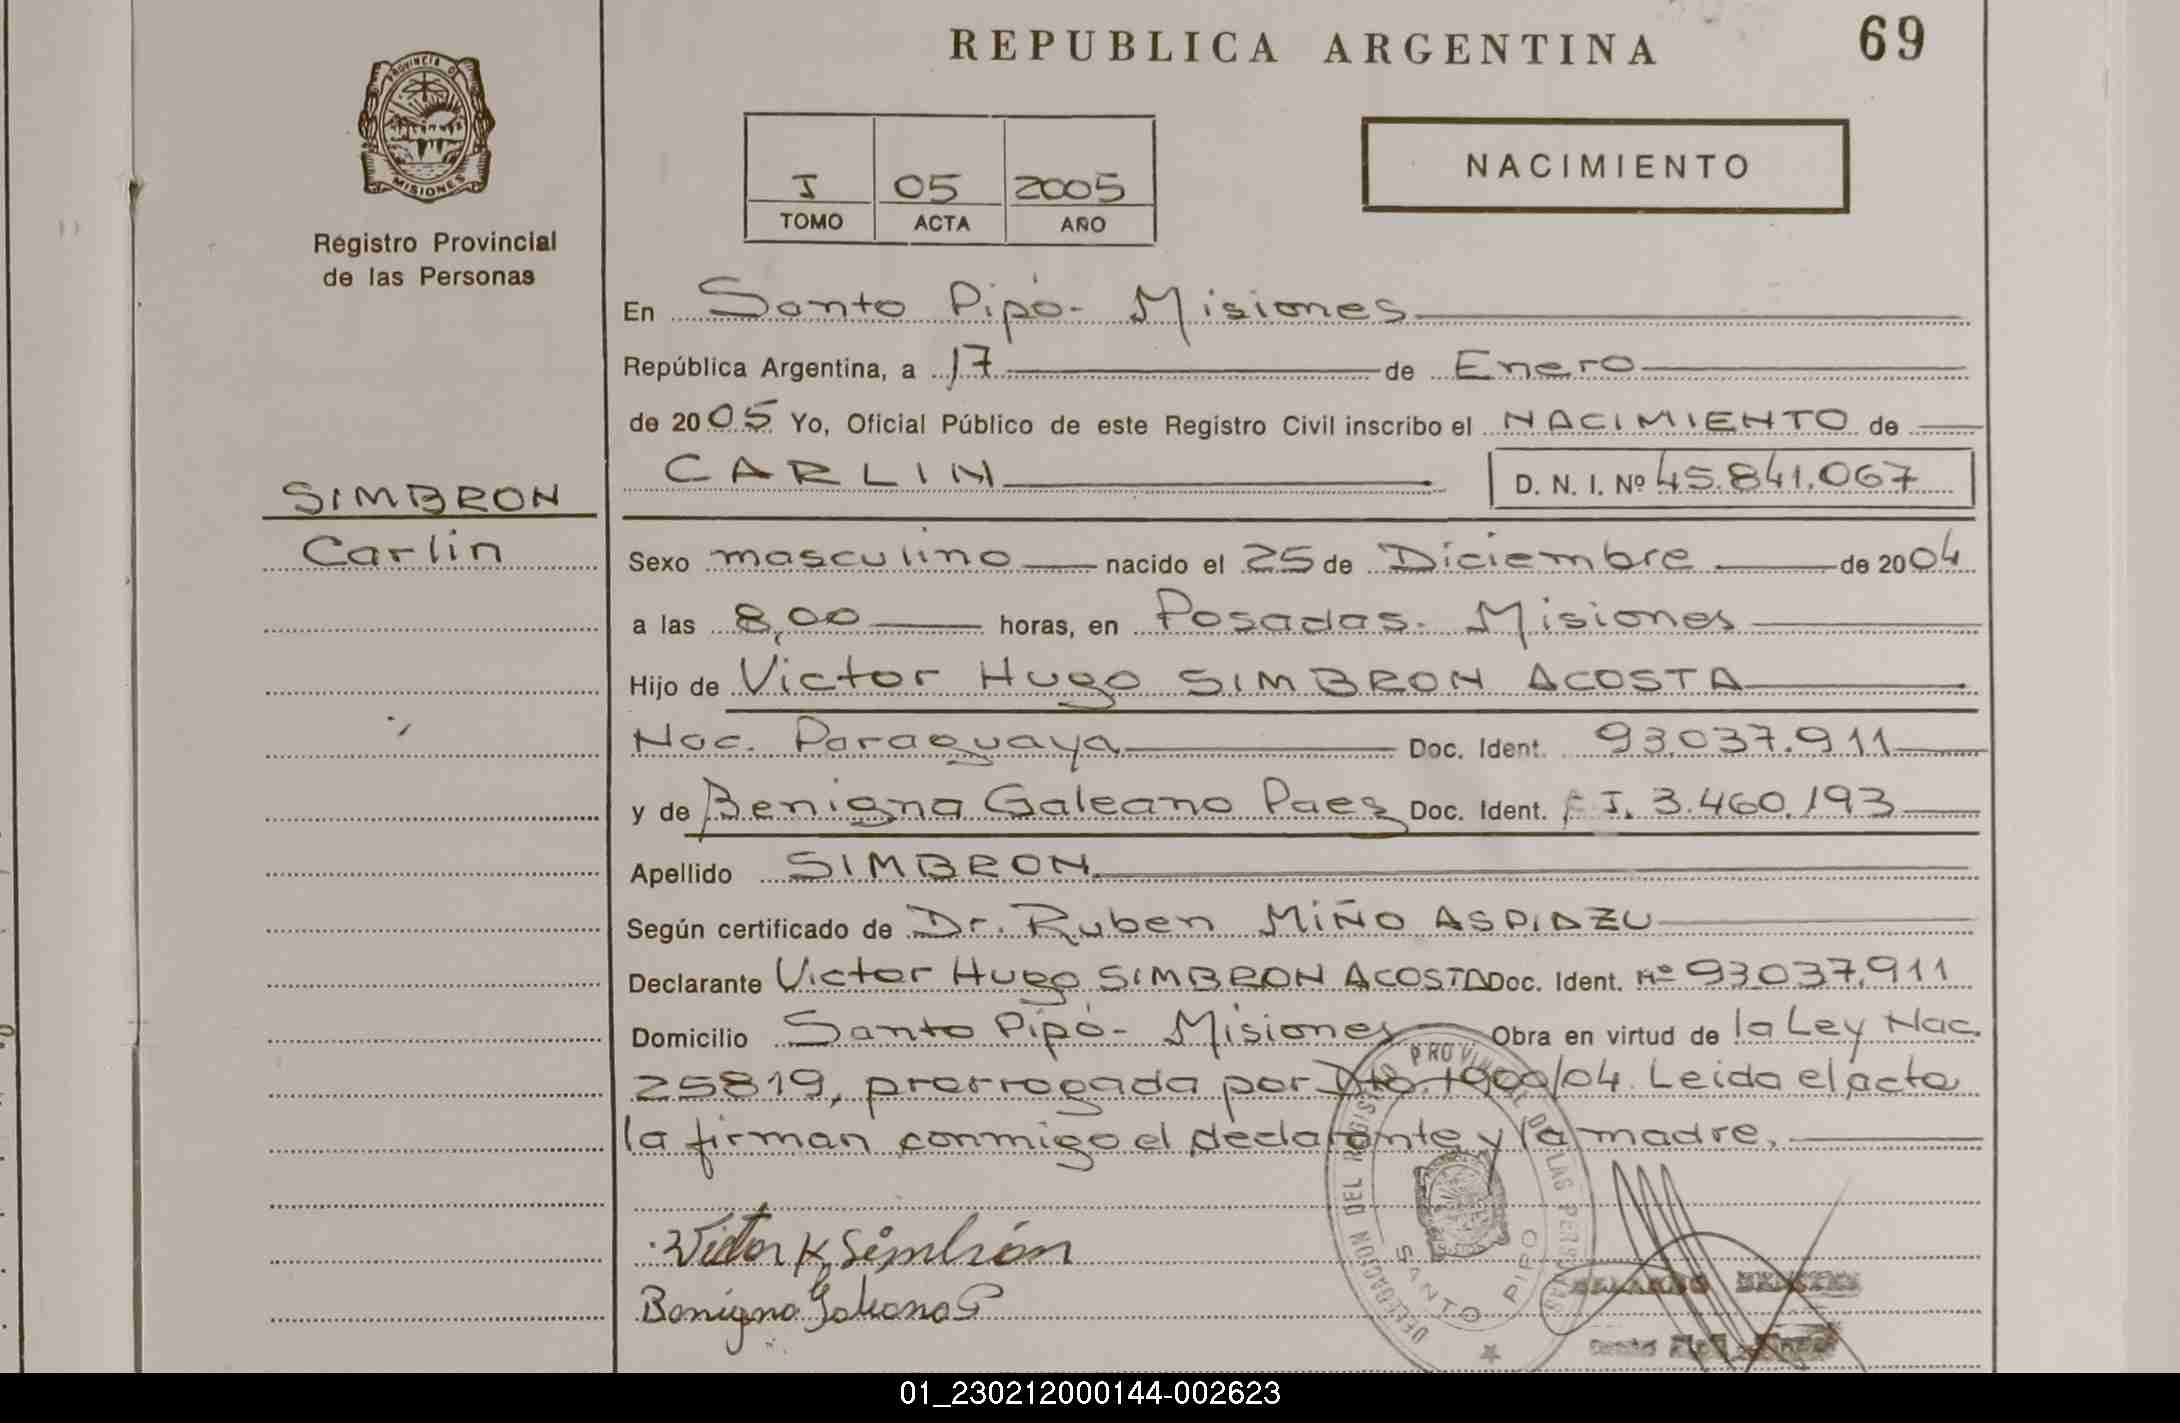 REPUBLICA ARGENTINA
69
PROVINCIA DE
MISIONES
Registro Provincial
de las Personas
I 05 2005
TOMO ACTA AÑO
NACIMIENTO
En Santo Pipó - Misiones
República Argentina, a 17 de Enero
de 2005 Yo, Oficial Público de este Registro Civil inscribo el NACIMIENTO de
CARLIN D. N. I. Nº 45.841.067
SIMBRON
Carlin
Sexo masculino nacido el 25 de Diciembre de 2004
a las 8,00 horas, en Posadas - Misiones
Hijo de Victor Hugo SIMBRON ACOSTA
Nac. Paraguaya Doc. Ident. 93.037.911
y de Benigna Galeano Paez Doc. Ident. I. 3.460.193
Apellido SIMBRON
Según certificado de Dr. Ruben MIÑO ASPIAZU
Declarante Victor Hugo SIMBRON ACOSTA Doc. Ident. Nº 93.037.911
Domicilio Santo Pipó - Misiones Obra en virtud de la Ley Nac.
25819, prorrogada por Dto. 1900/04. Leida el acta
la firman conmigo el declarante y la madre.
DELEGACION DEL REGISTRO PROVINCIAL DE LAS PERSONAS
SANTO PIPO
Victor H. Simbrón
Benigna Galeano P
01_230212000144-002623